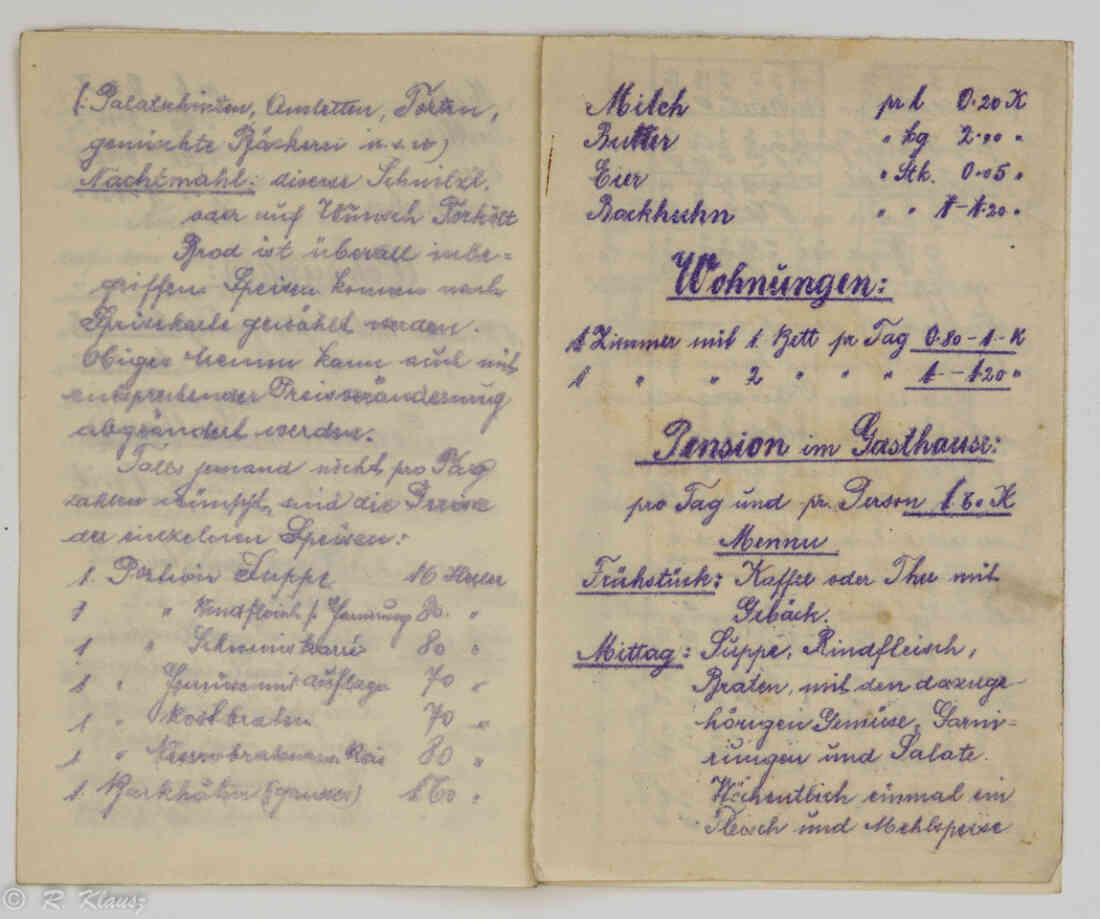 (: Palatschinken, Omletten, Torten,
gemischte Bäckerei u.s.w)
Nachtmahl: diverse Schnitzl.
oder auf Wunsch
Brod ist überall inbe=
griffen. Speisen können nach
Speisekarte gewählt werden.
Obiges Mennu kann auch mit
entsprechender Preisveränderung
abgeändert werden.
Falls jemand nicht pro Tag
zahlen wünscht, sind die Preise
der einzelnen Speisen:
1. Portion Suppe 16 Heller
1 " Rindfleisch 80. "
1 " Schweinskarré 80 "
1 " Gemüse mit Auflage 70 "
1 " Rostbraten 70 "
1 " 80 "
1. Backhühn (ganzes) 1.60 "
Milch pr l 0.20 K
Butter " kg "
Eier " Stk. 0.05 "
Backhuhn " " 1–1.20 "
Wohnungen:
1 Zimmer mit 1 Bett pr Tag 0.80 – 1.– K
1 " " 2 " " " 1.–1.20 "
Pension im Gasthause:
pro Tag und pr. Person K
Mennu
Frühstück: Kaffee oder Thee mit
Gebäck.
Mittag: Suppe, Rindfleisch,
Braten, mit den dazuge-
hörigen Gemüse, Garni-
rungen und Salate.
Wöchentlich einmal ein
Fleisch und Mehlspeise
© R. Klausz